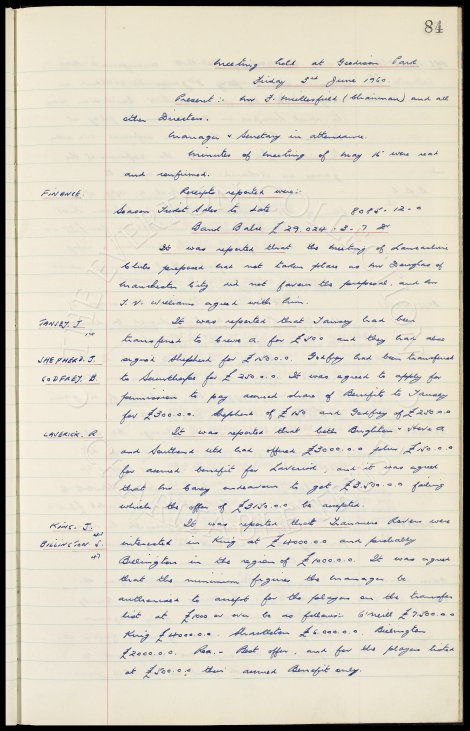 84
Meeting held at Goodison Park
Friday 3rd June 1960.
Present :- Mr F. Micklesfield (Chairman) and all
other Directors.
Manager & Secretary in attendance.
Minutes of meeting of May 16 were read
and confirmed.
FINANCE. Receipts reported were:
Season Ticket Sales to date 8085 - 12 - 0
Bank Balce £ 29.024 . 3 . 7 Dr
It was reported that the meeting of Lancashire
Clubs proposed had not taken place as Mr Douglas of
Manchester City did not favour the proposal, and Mr
T. V. Williams agreed with him.
TANSEY. J. It was reported that Tansey had been
transferred to Crewe A for £500 and they had also
SHEPHERD. J. signed Shepherd for £150.0.0. Godfrey had been transferred
GODFREY. B. to Scunthorpe for £ 750.0.0. It was agreed to apply for
permission to pay accrued share of Benefits to Tansey
for £300.0.0. Shepherd of £150 and Godfrey of £250.0.0
LAVERICK. R It was reported that both Brighton & Hove A
and Scotland Utd had offered £3000.0.0 plus £150.0.0
for accrued benefit for Laverick, and it was agreed
that Mr Carey endeavour to get £3.500.0.0 failing
which the offer of £3150.0.0 be accepted.
KING. J. It was reported that Tranmere Rovers were
BILLINGTON. S. interested in King at £4000.0.0 and probably
Billington in the region of £1000.0.0. It was agreed
that the minimum figures the manager be
authorised to accept for the players on the transfer
list at £1000 or over be as follows: O'Neill £7.500.0.0
King £4000.0.0. £6.000.0.0. Billington
£2000.0.0. Rea - Best offer, and for the players listed
at £500.0.0 their accrued Benefit only.